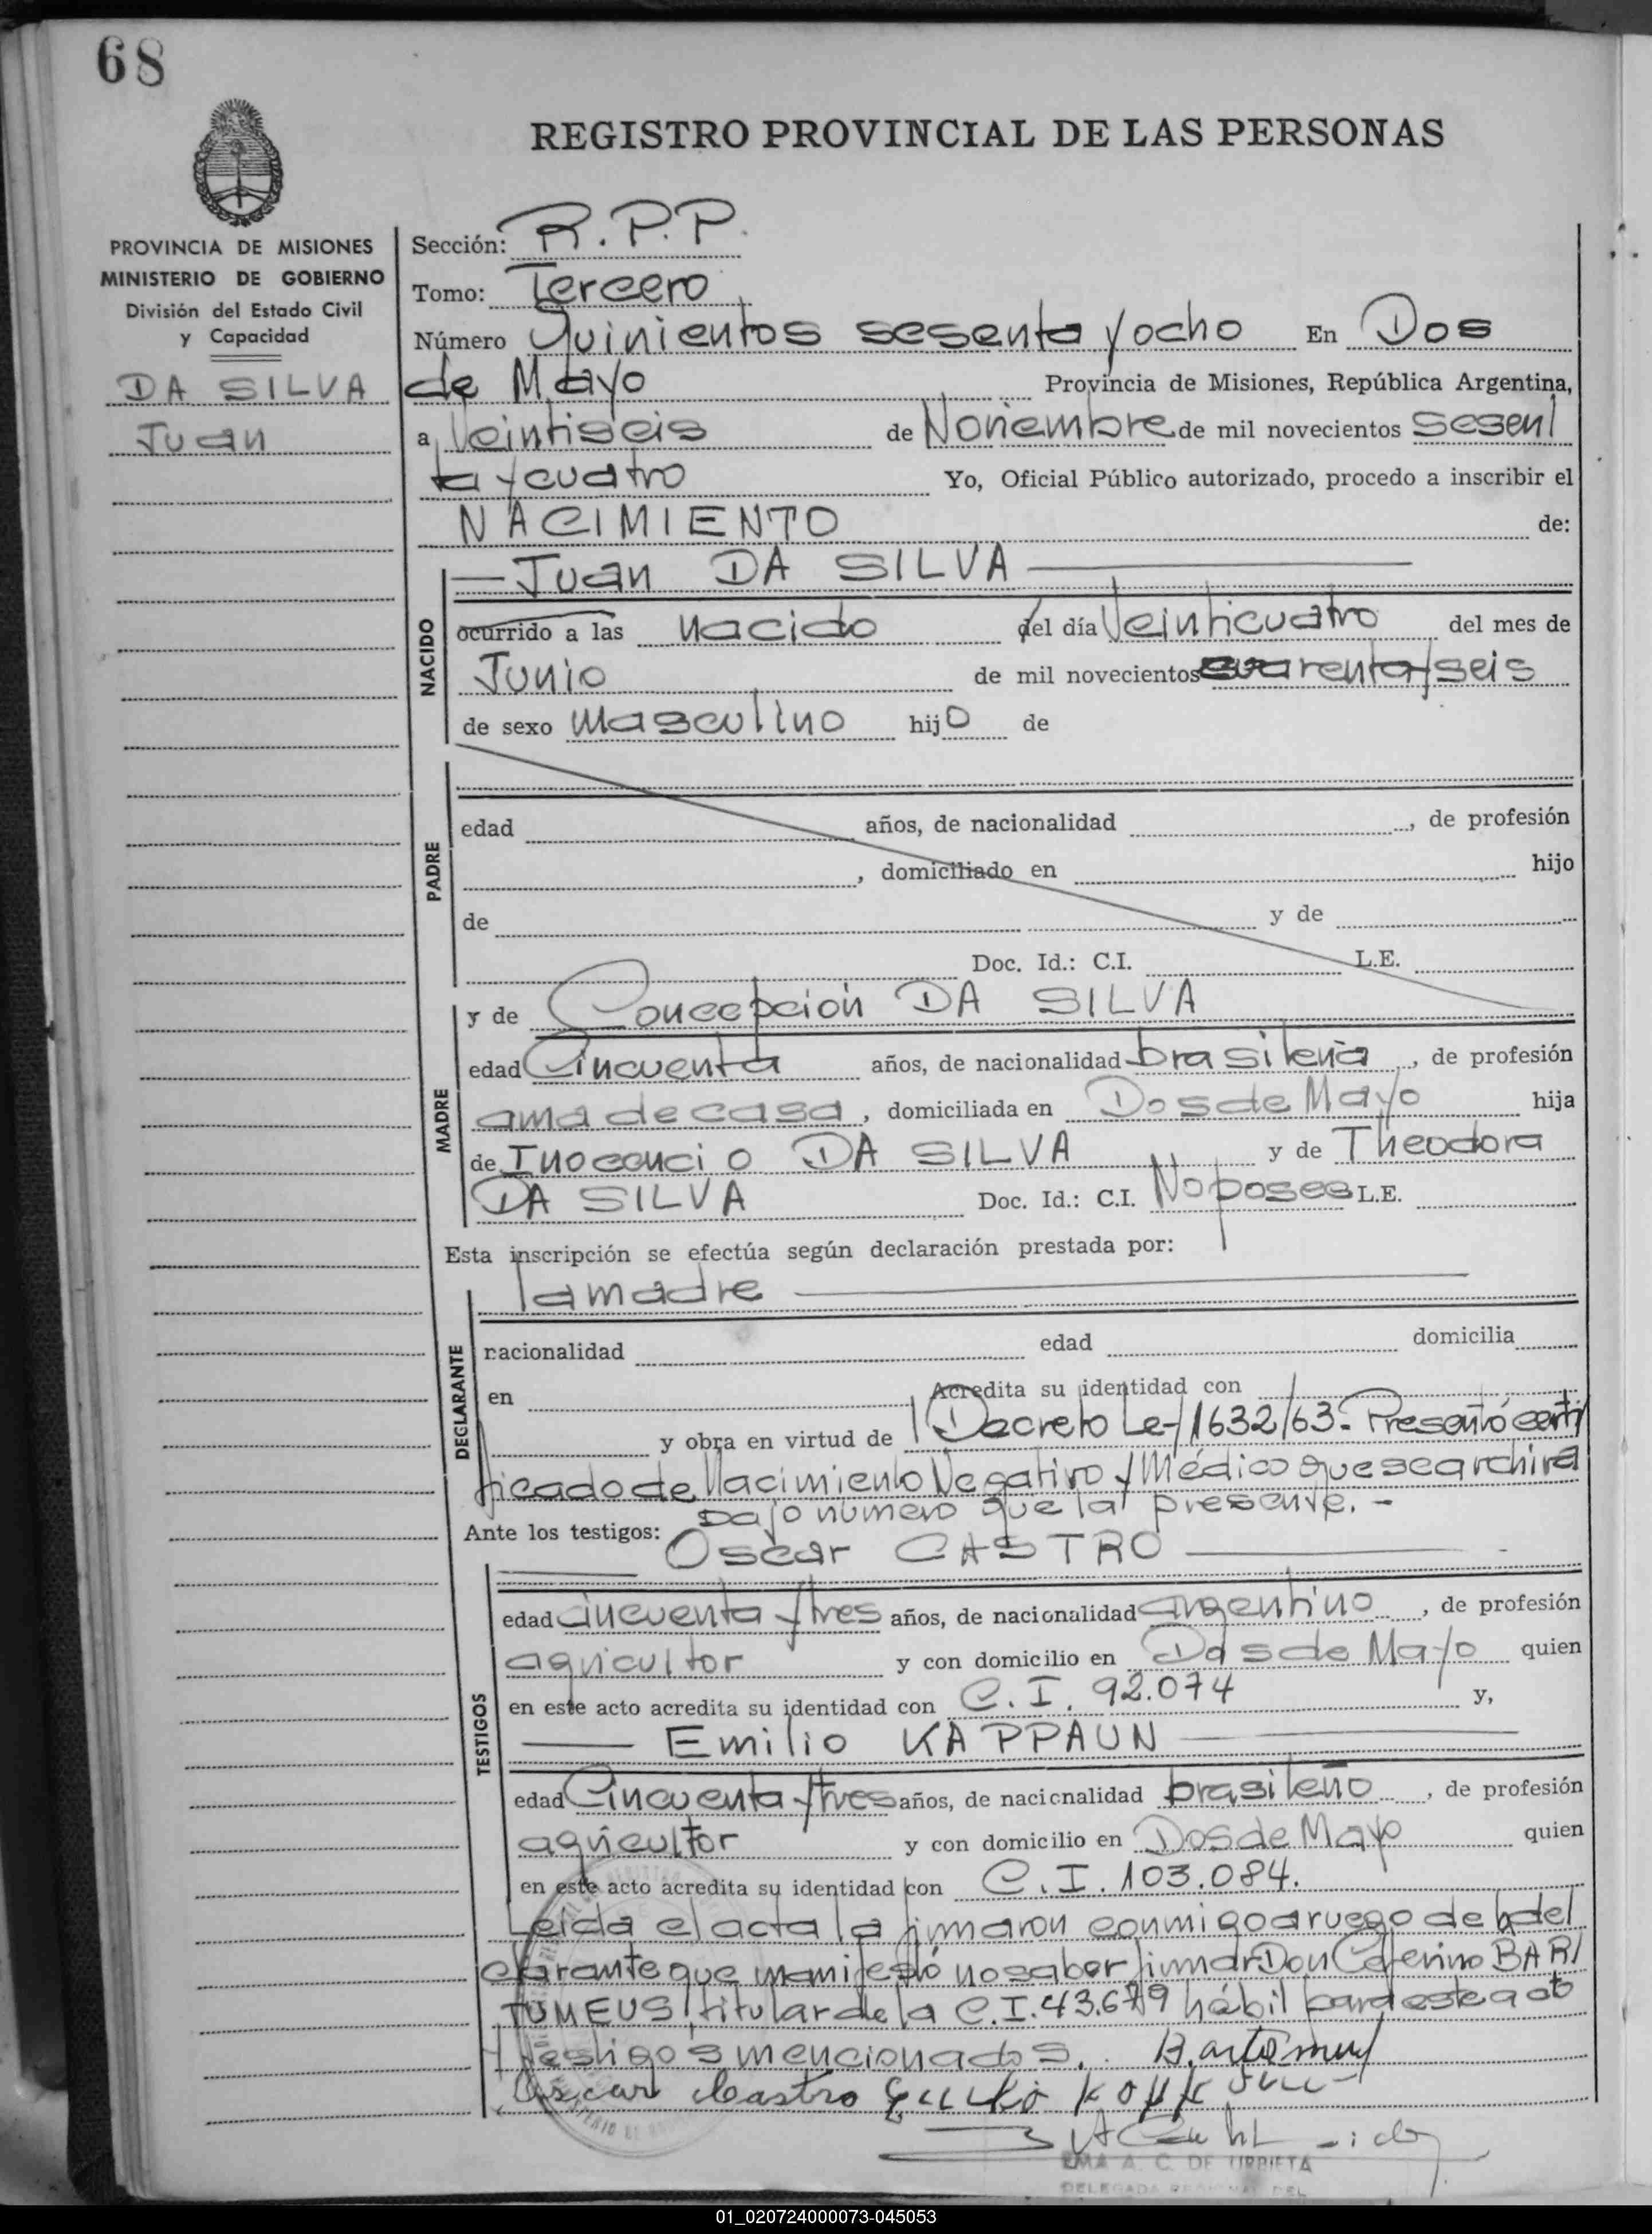 68
REGISTRO PROVINCIAL DE LAS PERSONAS
PROVINCIA DE MISIONES
MINISTERIO DE GOBIERNO
División del Estado Civil
y Capacidad
DA SILVA
Juan
Sección: R.P.P.
Tomo: Tercero
Número Quinientos sesenta y ocho En Dos
de Mayo Provincia de Misiones, República Argentina,
a Veintiseis de Noviembre de mil novecientos sesen/
ta y cuatro Yo, Oficial Público autorizado, procedo a inscribir el
NACIMIENTO de:
— Juan DA SILVA —
NACIDO
ocurrido a las nacido del día Veinticuatro del mes de
Junio de mil novecientos cuarenta y seis
de sexo masculino hijo de
PADRE
edad años, de nacionalidad , de profesión
, domiciliado en hijo
de y de
Doc. Id.: C.I. L.E.
MADRE
y de Concepción DA SILVA
edad Cincuenta años, de nacionalidad brasileña, de profesión
ama de casa, domiciliada en Dos de Mayo hija
de Inocencio DA SILVA y de Theodora
DA SILVA Doc. Id.: C.I. No posee L.E.
Esta inscripción se efectúa según declaración prestada por:
la madre —
DECLARANTE
nacionalidad edad domicilia
en Acredita su identidad con
y obra en virtud de Decreto Ley 1632/63.- Presentó certi/
ficado de Nacimiento Negativo y Médico que se archiva
bajo número que la presente.-
Ante los testigos: Oscar CASTRO —
TESTIGOS
edad cincuenta y tres años, de nacionalidad argentino, de profesión
agricultor y con domicilio en Dos de Mayo quien
en este acto acredita su identidad con C.I. 92.074 y,
— Emilio KAPPAUN —
edad Cincuenta y tres años, de nacionalidad brasileño, de profesión
agricultor y con domicilio en Dos de Mayo quien
en este acto acredita su identidad con C.I. 103.084.
Leída el acta la firmaron conmigo a ruego de la del
clarante que manifestó no saber firmar Don Ceferino BAR/
TUMEUS, titular de la C.I. 43.679 hábil para este acto
y testigos mencionados.
Oscar Castro
EMA A. C. DE URBIETA
DELEGADA REGIONAL DEL
01_020724000073-045053